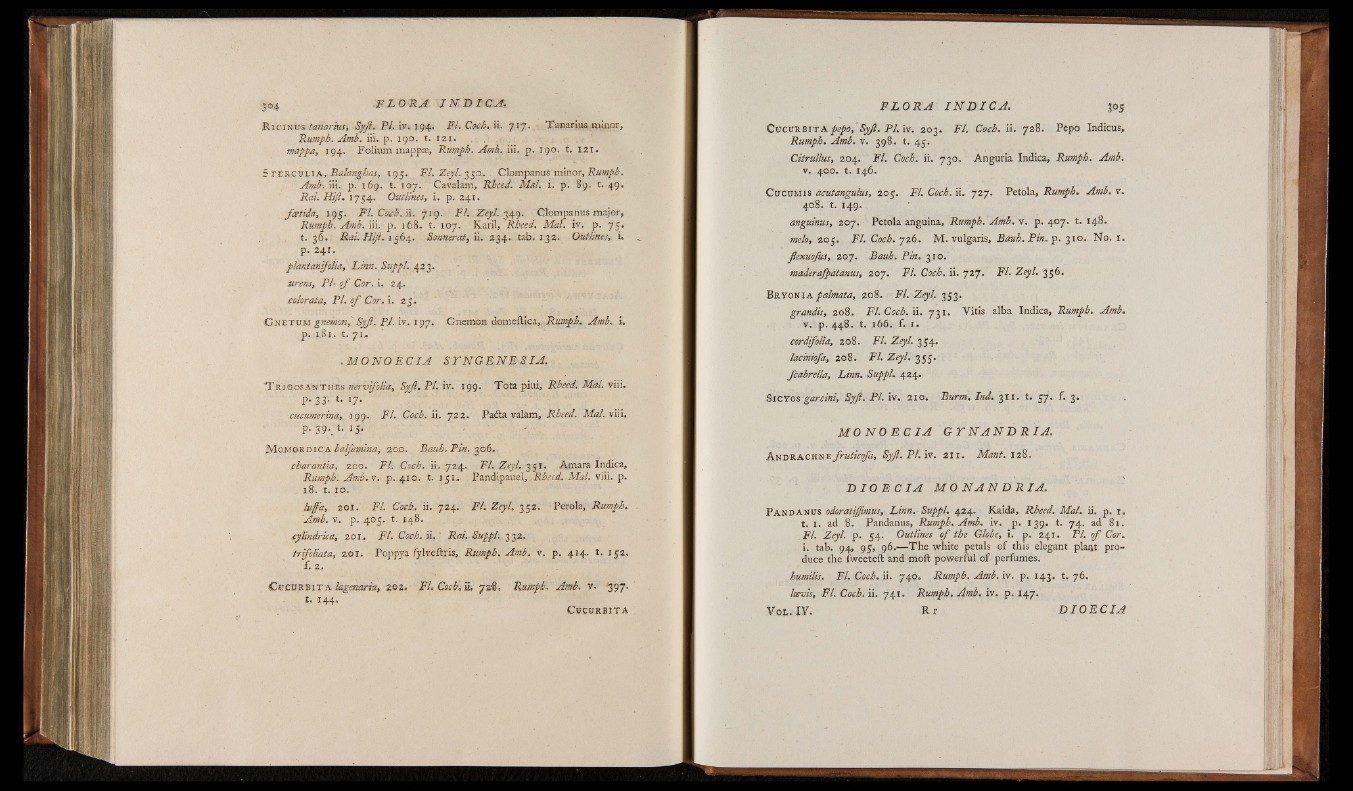 304 FLORA INDICA.
RICINUS tanarius, Syſt. Pl. iv. 194. Fl. Coch. ii. 717. Tanarius minor,
Rumph. Amb. iii. p. 190. t. 121.
mappa, 194. Folium mappæ, Rumph. Amb. iii. p. 190. t. 121.
STERCULIA, Balanghas, 195. Fl. Zeyl. 350. Clompanus minor, Rumph.
Amb. iii. p. 169. t. 107. Cavalam, Rheed. Mal. i. p. 89. t. 49.
Rai. Hiſt. 1754. Outlines, i. p. 241.
fœtida, 195. Fl. Coch. ii. 719. Fl. Zeyl. 349. Clompanus major,
Rumph. Amb. iii. p. 168. t. 107. Karil, Rheed. Mal. iv. p. 75.
t. 36. Rai. Hiſt. 1564. Sonnerat, ii. 234. tab. 132. Outlines, i.
p. 241.
plantanifolia, Linn. Suppl. 423.
urens, Pl. of Cor. i. 24.
colorata, Pl. of Cor. i. 25.
GNETUM gnemon, Syſt. Pl. iv. 197. Gnemon domeſtica, Rumph. Amb. i.
p. 181. t. 71.
MONOECIA SYNGENESIA.
TRICOSANTHES nervifolia, Syſt. Pl. iv. 199. Tota piui, Rheed. Mal. viii.
p. 33. t. 17.
cucumerina, 199. Fl. Coch. ii. 722. Padta valam, Rheed. Mal. viii.
p. 39. t. 15.
MOMORDICA balſamina, 200. Bauh. Pin. 306.
charantia, 200. Fl. Coch. ii. 724. Fl. Zeyl. 351. Amara Indica,
Rumph. Amb. v. p. 410. t. 151. Pandipauel, Rheed. Mal. viii. p.
18. t. 10.
luffa, 201. Fl. Coch. ii. 724. Fl. Zeyl. 352. Petola, Rumph.
Amb. v. p. 405. t. 148.
cylindrica, 201. Fl. Coch. ii. Rai. Suppl. 332.
trifoliata, 201. Poppya ſylveſtris, Rumph. Amb. v. p. 414. t. 152.
f. 2.
CUCURBITA lagenaria, 202. Fl. Coch. ii. 728. Rumph. Amb. v. 397.
t. 144.
CUCURBITA
FLORA INDICA. 305
CUCURBITA pepo, Syſt. Pl. iv. 203. Fl. Coch. ii. 728. Pepo Indicus,
Rumph. Amb. v. 398. t. 45.
Citrullus, 204. Fl. Coch. ii. 730. Anguria Indica, Rumph. Amb.
v. 400. t. 146.
CUCUMIS acutangulus, 205. Fl. Coch. ii. 727. Petola, Rumph. Amb. v.
408. t. 149.
anguinus, 207. Petola anguina, Rumph. Amb. v. p. 407. t. 148.
melo, 205. Fl. Coch. 726. M. vulgaris, Bauh. Pin. p. 310. No. 1.
flexuoſus, 207. Bauh. Pin. 310.
maderaſpatanus, 207. Fl. Coch. ii. 727. Fl. Zeyl. 356.
BRYONIA palmata, 208. Fl. Zeyl. 353.
grandis, 208. Fl. Coch. ii. 731. Vitis alba Indica, Rumph. Amb.
v. p. 448. t. 166. f. 1.
cordifolia, 208. Fl. Zeyl. 354.
lacinioſa, 208. Fl. Zeyl. 355.
ſcabrella, Linn. Suppl. 424.
SICYOS garcini, Syſt. Pl. iv. 210. Burm. Ind. 311. t. 57. f. 3.
MONOECIA GYNANDRIA.
ANDRACHNE fruticoſa, Syſt. Pl. iv. 211. Mant. 128.
DIOECIA MONANDRIA.
PANDANUS odoratiſſimus, Linn. Suppl. 424. Kaida, Rheed. Mal. ii. p. 1.
t. 1. ad 8. Pandanus, Rumph. Amb. iv. p. 139. t. 74. ad 81.
Fl. Zeyl. p. 54. Outlines of the Globe, i. p. 241. Pl. of Cor.
i. tab. 94, 95, 96.—The white petals of this elegant plant pro-
duce the ſweeteſt and moſt powerful of perfumes.
humilis. Fl. Coch. ii. 740. Rumph. Amb. iv. p. 143. t. 76.
lævis, Fl. Coch. ii. 741. Rumph. Amb. iv. p. 147.
VOL. IV. R r DIOECIA